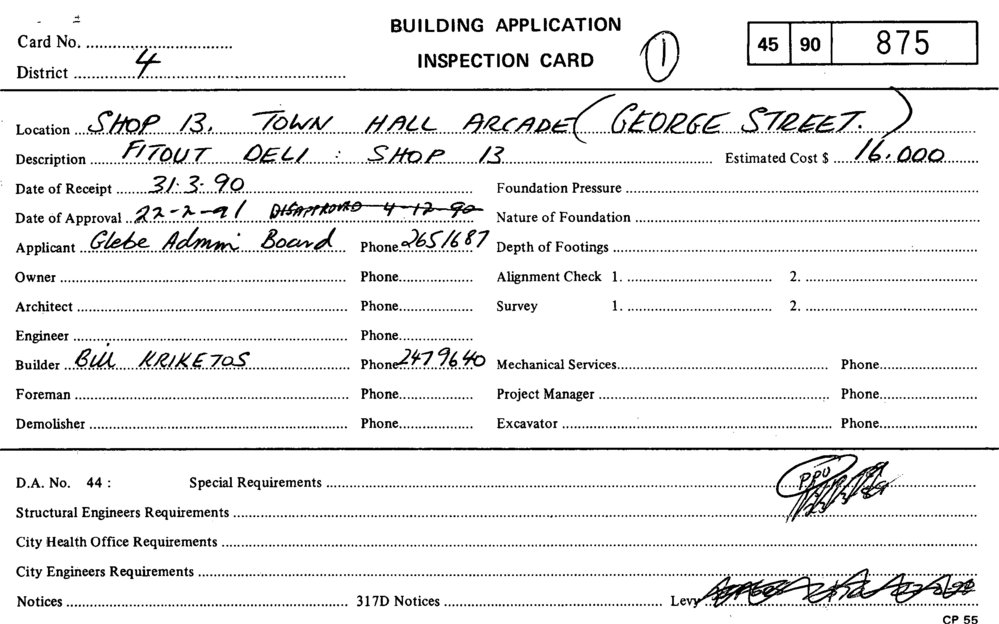 BUILDING APPLICATION
Card No.
INSPECTION CARD 1 45 90 875
District 4
Location SHOP 13, TOWN HALL ARCADE (GEORGE STREET.)
Description FITOUT DELI : SHOP 13 Estimated Cost $ 16,000
Date of Receipt 31.3.90 Foundation Pressure
Date of Approval 22-2-91 DISAPPROVED 4-12-90 Nature of Foundation
Applicant Glebe Admin Board Phone 2651687 Depth of Footings
Owner Phone Alignment Check 1. 2.
Architect Phone Survey 1. 2.
Engineer Phone
Builder Bill KRIKETOS Phone 2479640 Mechanical Services Phone
Foreman Phone Project Manager Phone
Demolisher Phone Excavator Phone
D.A. No. 44 : Special Requirements PPO
Structural Engineers Requirements
City Health Office Requirements
City Engineers Requirements
Notices 317D Notices Levy
CP 55